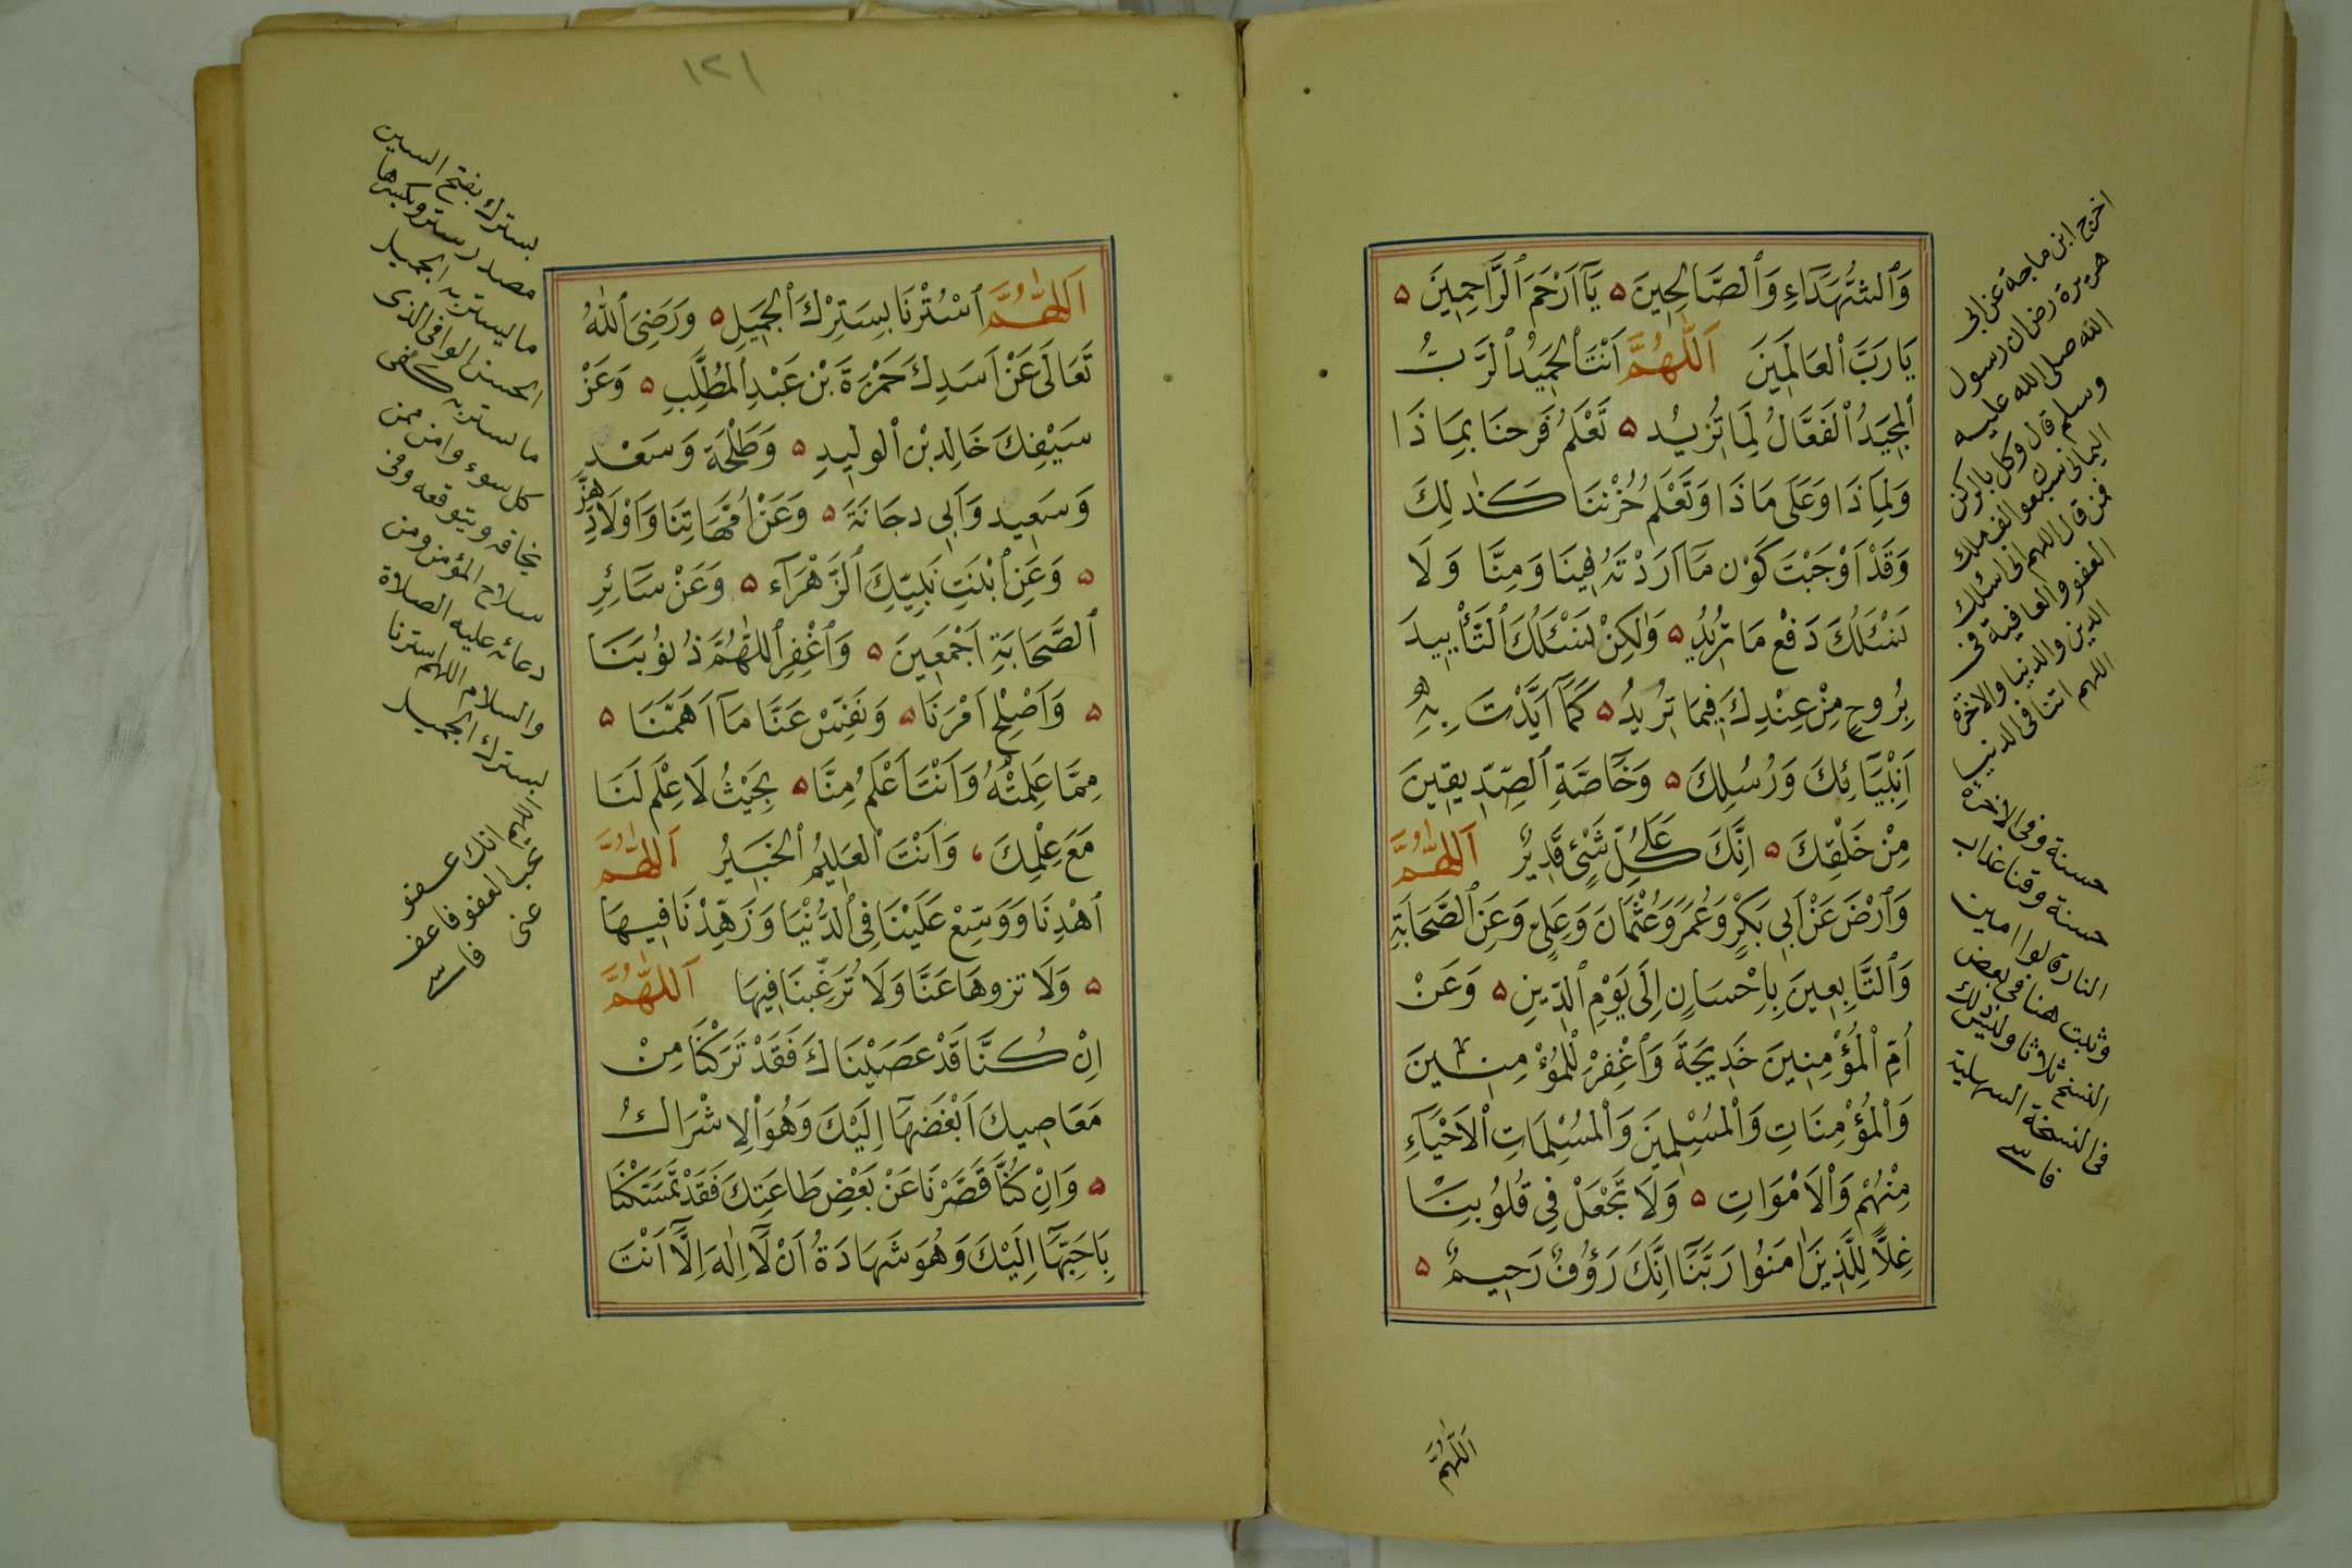 وَٱلشُّهَدَآءِ وَٱلصَّالِحِينَ ۵ يَآ اَرْحَمَ ٱلرَّاحِمِينَ ۵
يَا رَبَّ ٱلْعَالَمِينَ اَللّٰهُمَّ اَنْتَ ٱلْحَمِيدُ ٱلرَّبُّ
ٱلْمَجِيدُ ٱلْفَعَّالُ لِمَا تُرِيدُ ۵ تَعْلَمُ فَرَحَنَا بِمَا ذَا
وَلِمَا ذَا وَعَلَى مَا ذَا وَتَعْلَمُ حُزْنَنَا كَذٰلِكَ
وَقَدْ اَوْجَبْتَ كَوْنَ مَا اَرَدْتَهُ فِينَا وَمِنَّا وَلَا
نَسْئَلُكَ دَفْعَ مَا تُرِيدُ ۵ وَلٰكِنْ نَسْئَلُكَ ٱلتَّأْيِيدَ
بِرُوحٍ مِنْ عِنْدِكَ فِيمَا تُرِيدُ ۵ كَمَا اَيَّدْتَ بِهِ
اَنْبِيَآئِكَ وَرُسُلِكَ ۵ وَخَآصَّةِ ٱلصِّدِّيقِينَ
مِنْ خَلْقِكَ ۵ اِنَّكَ عَلَى كُلِّ شَيْءٍ قَدِيرٌ اَللّٰهُمَّ
وَٱرْضَ عَنْ اَبِي بَكْرٍ وَعُمَرَ وَعُثْمَانَ وَعَلِيٍّ وَعَنِ ٱلصَّحَابَةِ
وَٱلتَّابِعِينَ بِاِحْسَانٍ اِلَى يَوْمِ ٱلدِّينِ ۵ وَعَنْ
اُمِّ ٱلْمُؤْمِنِينَ خَدِيجَةَ وَٱغْفِرْ لِلْمُؤْمِنِينَ
وَٱلْمُؤْمِنَاتِ وَٱلْمُسْلِمِينَ وَٱلْمُسْلِمَاتِ ٱلْاَحْيَآءِ
مِنْهُمْ وَٱلْاَمْوَاتِ ۵ وَلَا تَجْعَلْ فِي قُلُوبِنَا
غِلًّا لِلَّذِينَ اٰمَنُوا رَبَّنَا اِنَّكَ رَؤُفٌ رَحِيمٌ ۵
اخرج ابن ماجة عن ابى
هريرة رض ان رسول
الله صلى الله عليه
وسلم قال وكل بالركن
اليمانى سبعوا الف ملك
فمن قال اللهم انى اسئلك
العفو والعافية فى
الدين والدنيا والاخرة
اللهم اتنا فى الدنيا
حسنة وفى الاخرة
حسنة وقنا عذاب
النار قالوا امين
وثبت هنا فى بعض
النسخ ثلاثا وليس ذلك
فى النسخة السهلية
فاسى
اللّٰهُمَّ
١٢١
اَللّٰهُمَّ ٱسْتُرْنَا بِسَتْرِكَ ٱلْجَمِيلِ ۵ وَرَضِيَ ٱللّٰهُ
تَعَالَى عَنْ اَسَدِكَ حَمْزَةَ بْنِ عَبْدِ ٱلْمُطَّلِبِ ۵ وَعَنْ
سَيْفِكَ خَالِدِ بْنِ ٱلْوَلِيدِ ۵ وَطَلْحَةَ وَسَعْدٍ
وَسَعِيدٍ وَاَبِي دجَانَةَ ۵ وَعَنْ اُمَّهَاتِنَا وَاَوْلَادِهِنَّ
۵ وَعَنِ ٱبْنَتِ نَبِيِّكَ ٱلزَّهْرَآءِ ۵ وَعَنْ سَآئِرِ
ٱلصَّحَابَةِ اَجْمَعِينَ ۵ وَٱغْفِرِ ٱللّٰهُمَّ ذُنُوبَنَا
۵ وَاَصْلِحْ اَمْرَنَا ۵ وَنَفِّسْ عَنَّا مَآ اَهَمَّنَا ۵
مِمَّا عَلِمْتَهُ وَاَنْتَ اَعْلَمُ مِنَّا ۵ بِحَيْثُ لَا عِلْمَ لَنَا
مَعَ عِلْمِكَ ، وَاَنْتَ ٱلْعَلِيمُ ٱلْخَبِيرُ اَللّٰهُمَّ
ٱهْدِنَا وَوَسِّعْ عَلَيْنَا فِي ٱلدُّنْيَا وَزَهِّدْنَا فِيهَا
۵ وَلَا تزوهَا عَنَّا وَلَا تُرَغِّبْنَا فِيهَا اَللّٰهُمَّ
اِنْ كُنَّا قَدْ عَصَيْنَاكَ فَقَدْ تَرَكْنَا مِنْ
مَعَاصِيكَ اَبْغَضَهَا اِلَيْكَ وَهُوَ ٱلْاِشْرَاكُ
۵ وَاِنْ كُنَّا قَصَّرْنَا عَنْ بَعْضِ طَاعَتِكَ فَقَدْ تَمَسَّكْنَا
بِاَحَبِّهَا اِلَيْكَ وَهُوَ شَهَادَةُ اَنْ لَآ اِلٰهَ اِلَّا اَنْتَ
بسترك بفتح السين
مصدر ستر وبكسرها
ما ليستر به الجميل
الحسن الوافى الذى
ما ستر به كفى
كل سوء وامن ممن
يخافه ويتوقعه وفى
سلاح المؤمن ومن
دعائه عليه الصلاة
والسلام اللهم استرنا
بسترك الجميل
اللهم انك عفو
تحب العفو فاعف
عنى فاسى